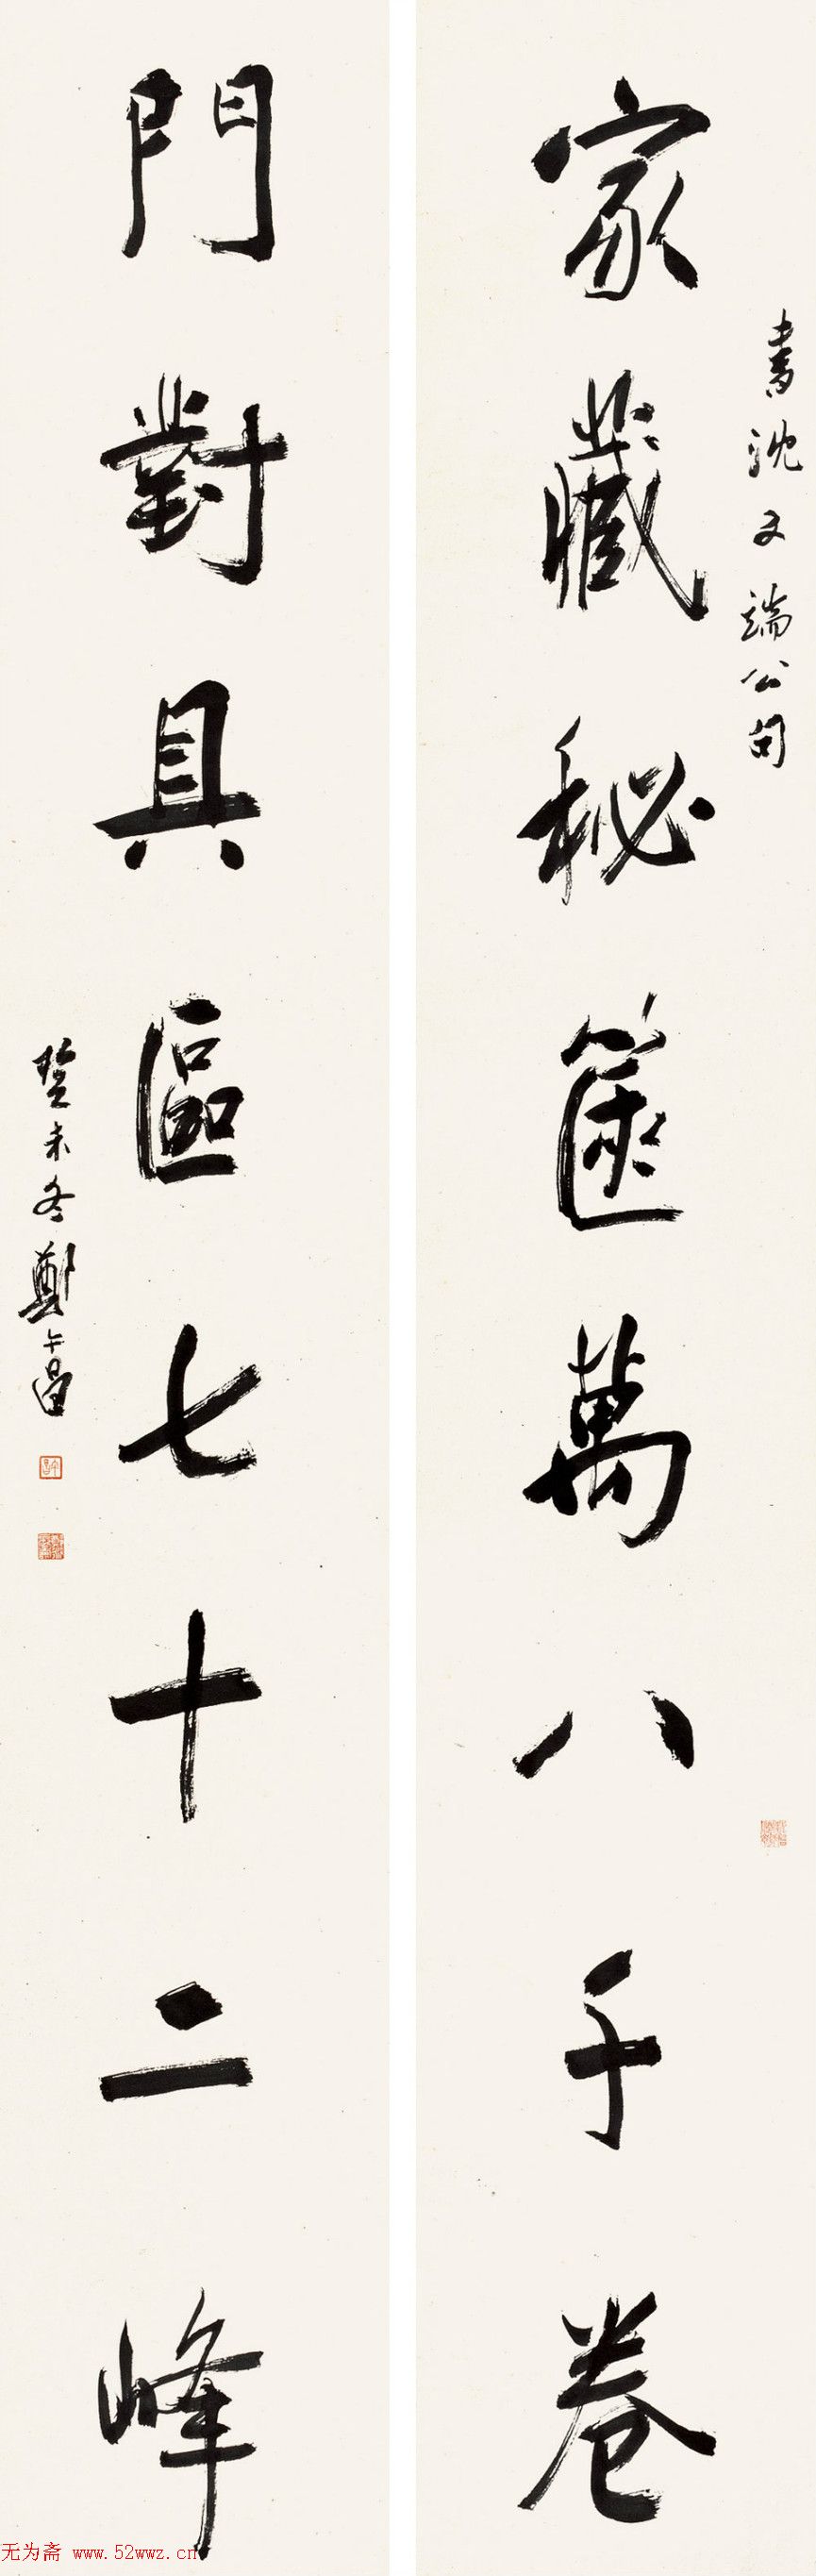 書沈文端公句
家藏秘箧萬八千卷
門對具區七十二峰
癸未冬鄭午昌
无为斋 www.52wwz.cn